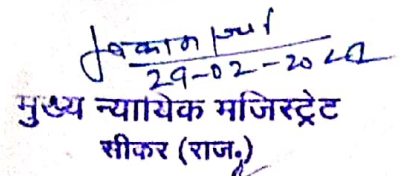 29-02-20
मुख्य न्यायिक मजिस्ट्रेट
सीकर (राज.)